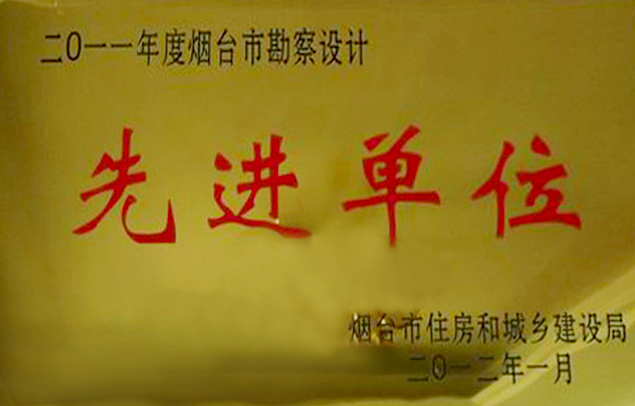 二〇一一年度烟台市勘察设计
先进单位
烟台市住房和城乡建设局
二〇一二年一月